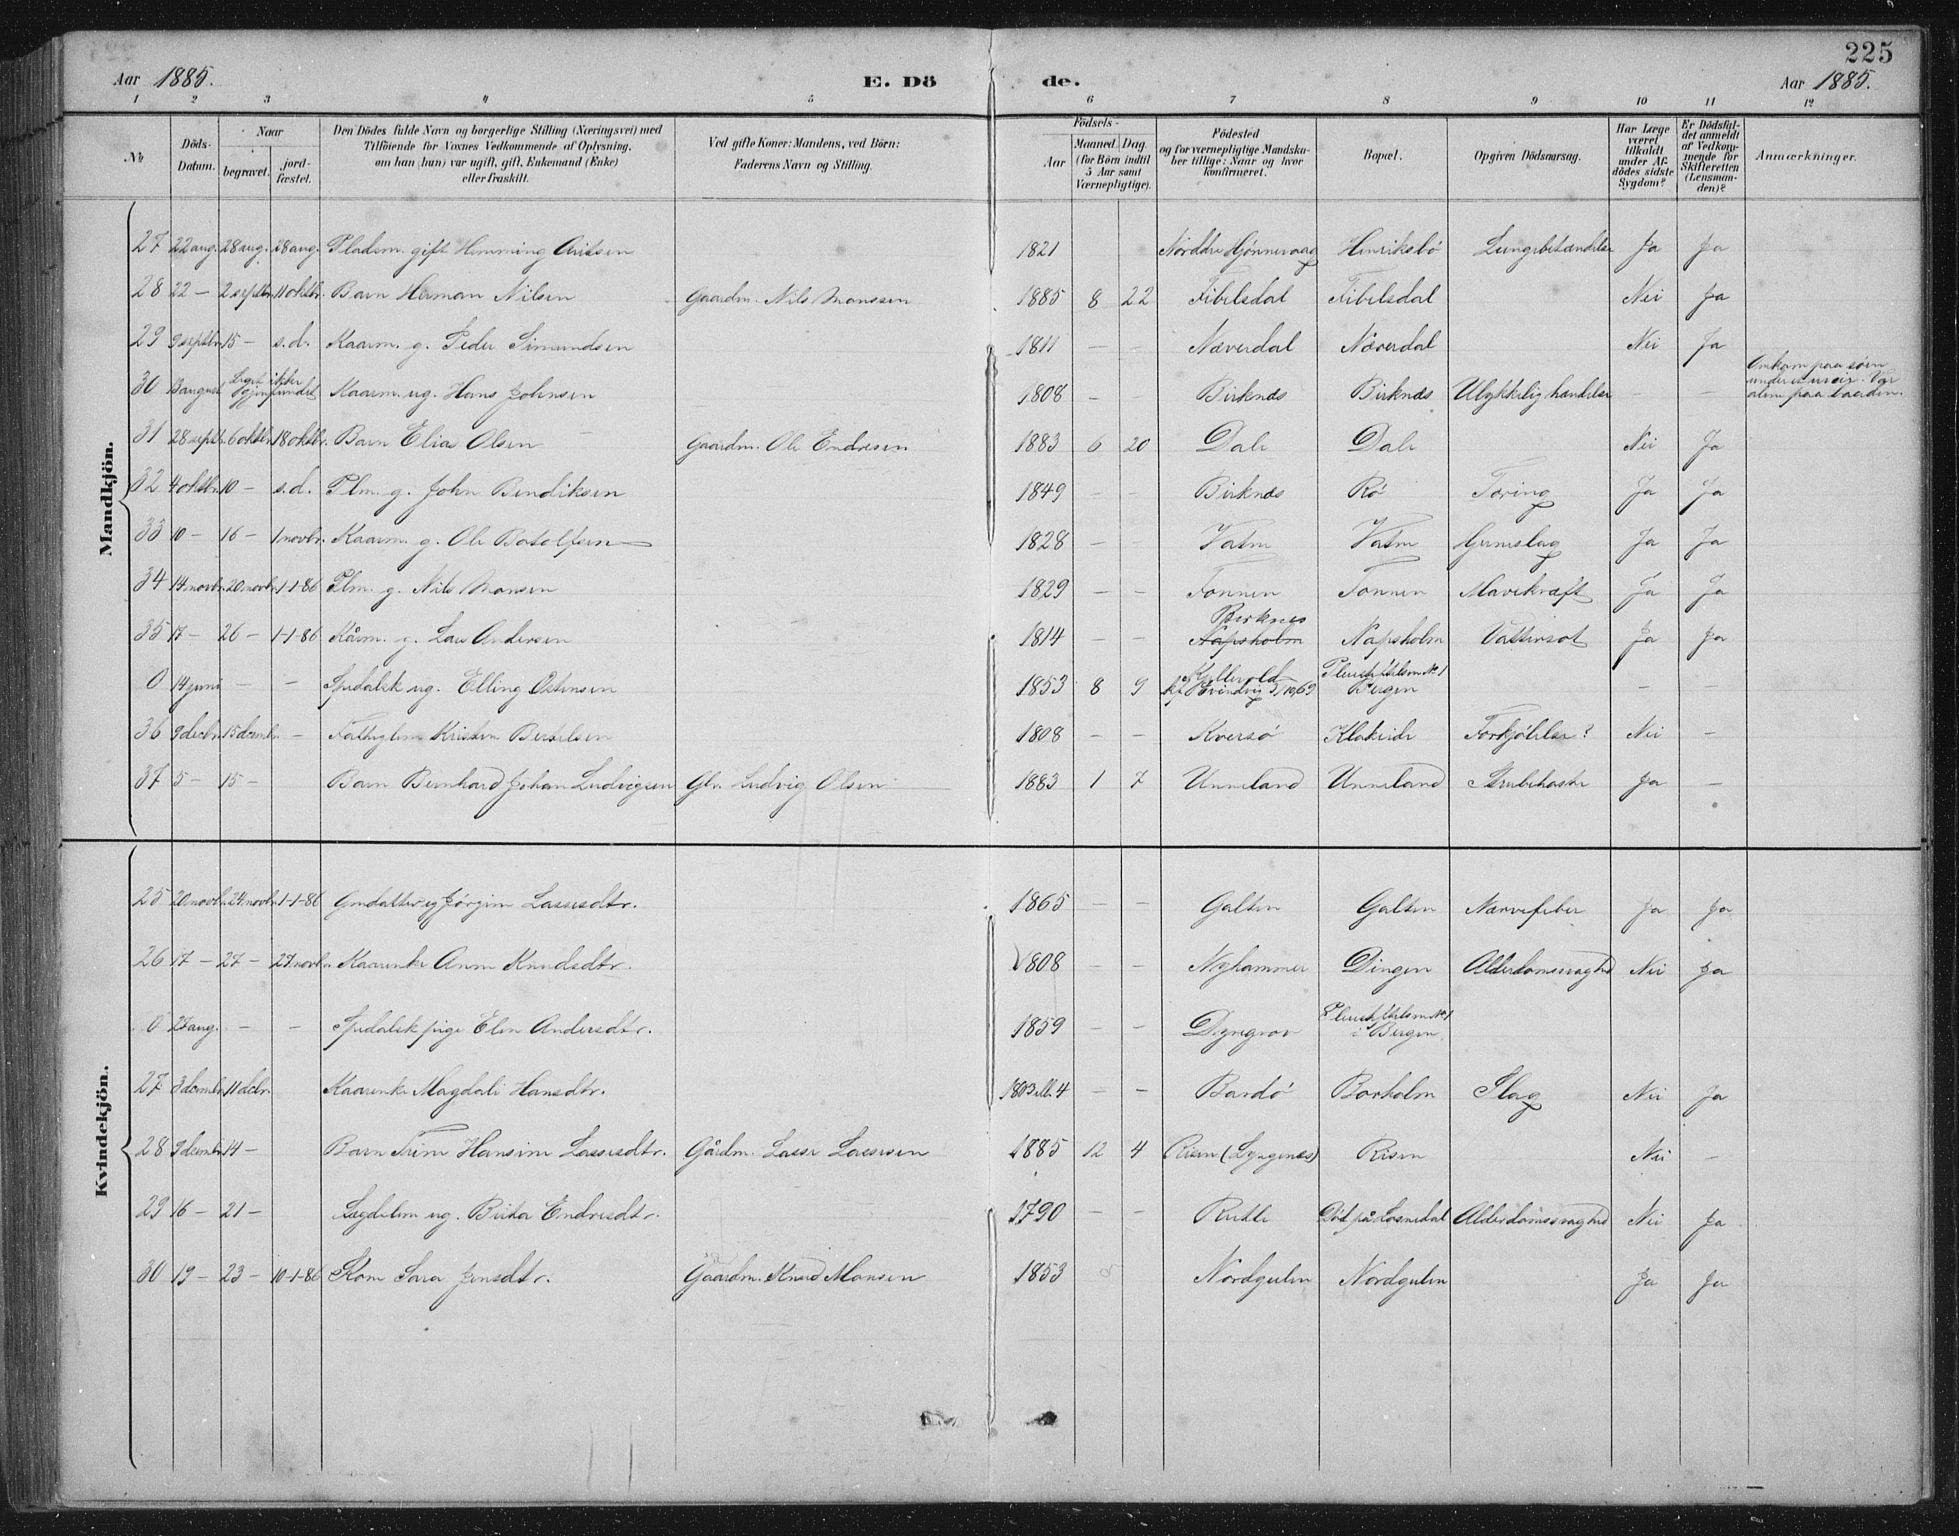 225
Aar 1885. E. Dö de. Aar 1885.
1 2 3 4 5 6 7 8 9 10 11 12
№ Döds-Datum. Naar begravet. jordfæstet. Den Dödes fulde Navn og borgerlige Stilling (Næringsvei) med Tilföiende for Voxnes Vedkommende af Oplysning, om han (hun) var ugift, gift, Enkemand (Enke) eller fraskilt. Ved gifte Koner: Mandens, ved Börn: Faderens Navn og Stilling. Födsels- Aar Maaned Dag (for Börn indtil 5 Aar samt Værnepligtige). Födested og for værnepligtige Mandskaber tillige: Naar og hvor konfirmeret. Bopæl. Opgiven Dödsaarsag. Har Læge været tilkaldt under Afdödes sidste Sygdom? Er Dödsfaldet anmeldt af Vedkommende for Skifteretten (Lensmanden)? Anmærkninger.
Mandkjön.
27 22 aug. 28 aug. 28 aug. Pladsm. gift Henning 1821 Norddre Hjønnevaag Henriksbø Lungebetændelse Ja Ja
28 22 – 2 septbr. 11 oktbr. Barn Herman Nilsen Gaardm. Nils Monssen 1885 8 22 Fibelsdal Fibelsdal Nei Ja
29 9 septbr. 15 – s.d. Kaarm. g. Peder Simundsen 1811 – – Næverdal Næverdal Nei Ja
30 13 august Liget ikke igjenfundet Kaarm. ug. Hans Johnsen 1808 – – Birknes Birknes Ulykkelig hændelse – – Omkom paa søen under uveir. Var alene paa baaden.
31 28 septb. 6 oktbr. 18 oktbr. Barn Elias Olsen Gaardm. Ole Endresen 1883 6 20 Dale Dale Nei Ja
32 4 oktbr. 10 – s.d. Plm. g. John Bendiksen 1849 – – Birknes Rö Tæring Ja Ja
33 10 – 16 – 1 novbr. Kaarm. g. Ole Botolfsen 1828 – – Vatne Vatne Ja Ja
34 14 novbr. 20 novbr. 1-1-86 Plm. g. Nils Monsen 1829 – – Fonnen Fonnen Mavekræft Ja Ja
35 17 – 26 – 1-1-86 Kårm. g. Lars Andersen 1814 – – Birknes Napsholm Napsholm Vattersot Ja Ja
0 14 juni – – Spedalsk ug. Elling Ostensen 1853 8 9 5/10 69 Pleiestiftelsen № 1 Bergen – –
36 9 decbr. 15 decembr. – Fattiglem Kristen Bertelsen 1808 – – Kversø Klakeide Forkjølelse? Nei –
37 5 – 15 – Barn Bernhard Johan Ludvigsen Ludvig Olsen 1883 1 7 Unneland Unneland Strubehoste Ja –
Kvindekjön.
25 20 novb. 24 novb. 1-1-86 Gmdatter ug Jørgine Lassesdtr. 1865 – – Galten Galten Nervefeber Ja Ja
26 17 – 27 – 27 novb. Kaarenke Anne Knudsdtr. 1808 – – Nyhammer Dingen Alderdomssvaghed Nei Ja
0 23 aug. – – Spedalsk pige Elen Andersdtr. 1859 – – Dyngrov Pleiestiftelsen № 1 i Bergen
27 3 decembr. 11 decbr. Kaarenke Magdali Hansdtr. 1803 ell. 4 – – Bardø Borholm Slag Nei Ja
28 9 decembr. 14 – Barn Trine Hansine Lassesdtr. Gårdm. Lasse Lassesen 1885 12 4 Risen (Lyngenes) Risen Nei –
29 16 – 21 – Lægdslem ug. Brita Endresdtr. 1790 – – Rutle Död på Losnedal Alderdomssvaghed Nei Ja
30 19 – 23 – 10-1-86 Kone Sara Jensdtr. Gaardm. Knud Monsen 1853 Nordgulen Nordgulen Ja Ja